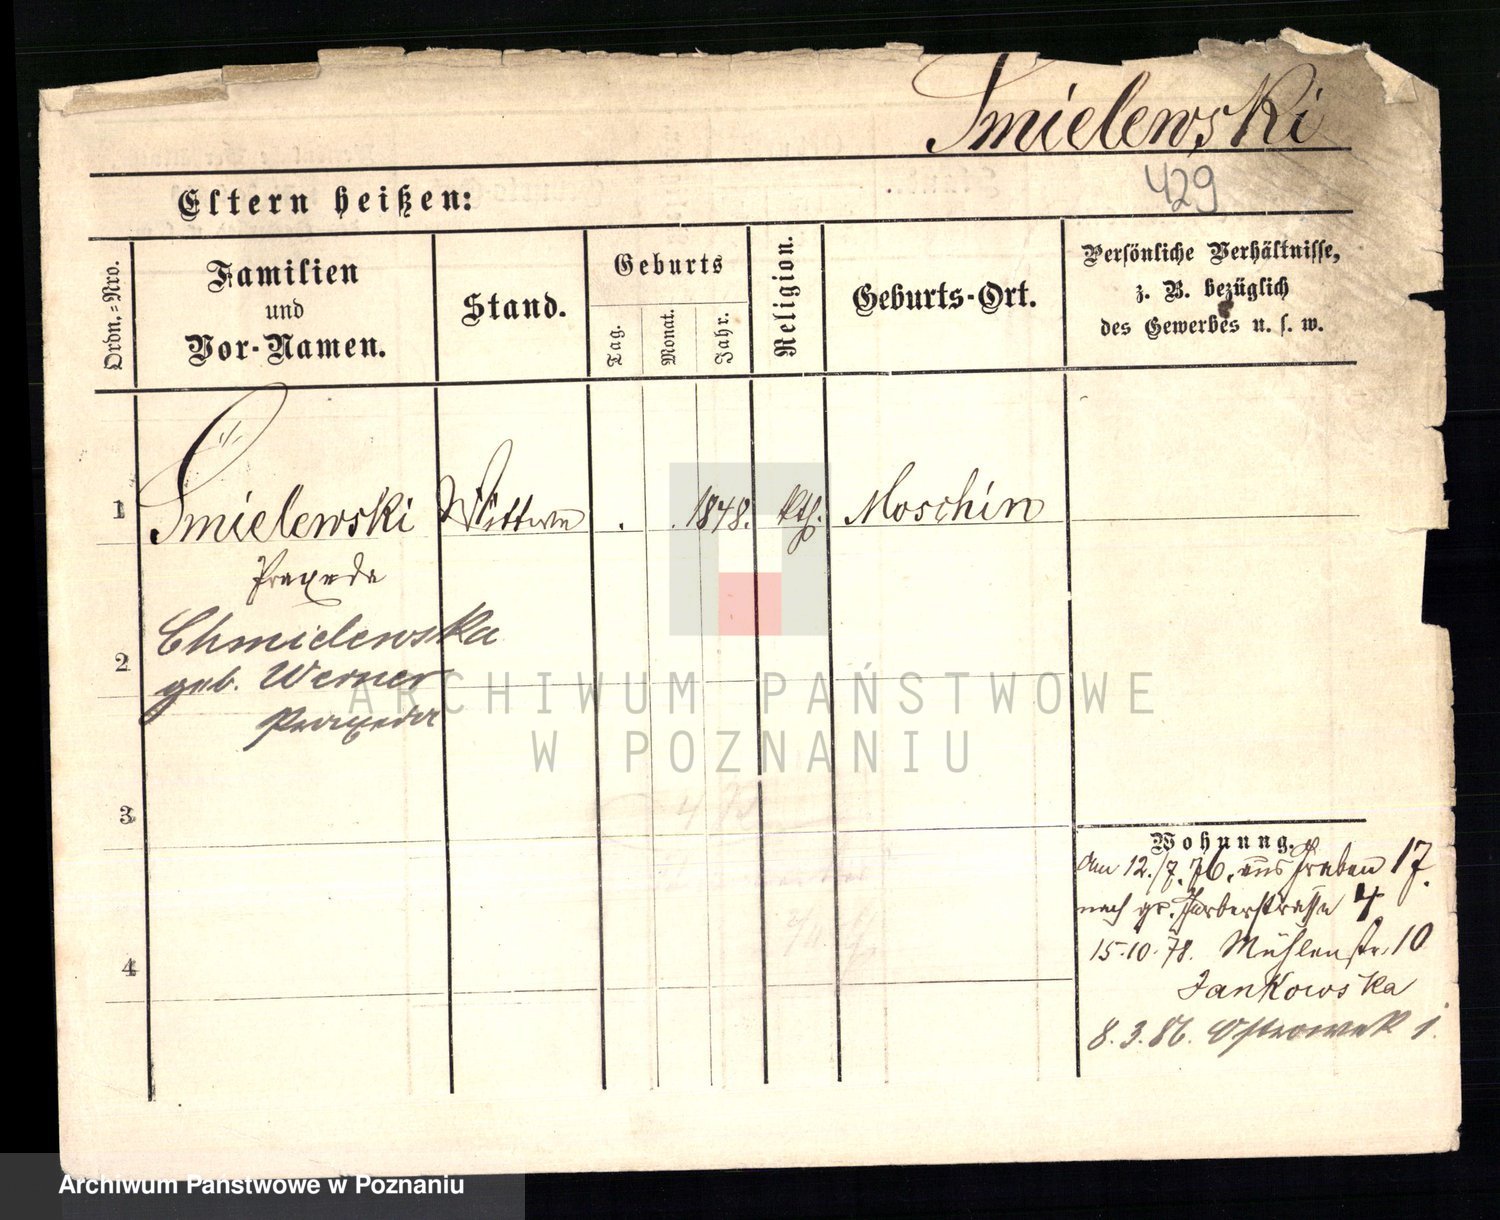 Smielewski
429
Eltern heißen:
Ordn.-Nro.
Familien
und
Vor-Namen.
Stand.
Geburts
Tag.
Monat.
Jahr.
Religion.
Geburts-Ort.
Persönliche Verhältnisse,
z. B. bezüglich
des Gewerbes u. s. w.
1
Smielewski
Wittwe
1848.
kth.
Moschin
Praxeda
Chmielewska
2
geb. Werner
Praxeda
3
4
Wohnung.
am 12./7. 76. aus Graben 17.
nach gr. Gerberstrasse 4
15.10.78. Mühlenstr. 10
Jankowska
8.3.86. Ostrowek
ARCHIWUM PAŃSTWOWE
W POZNANIU
Archiwum Państwowe w Poznaniu